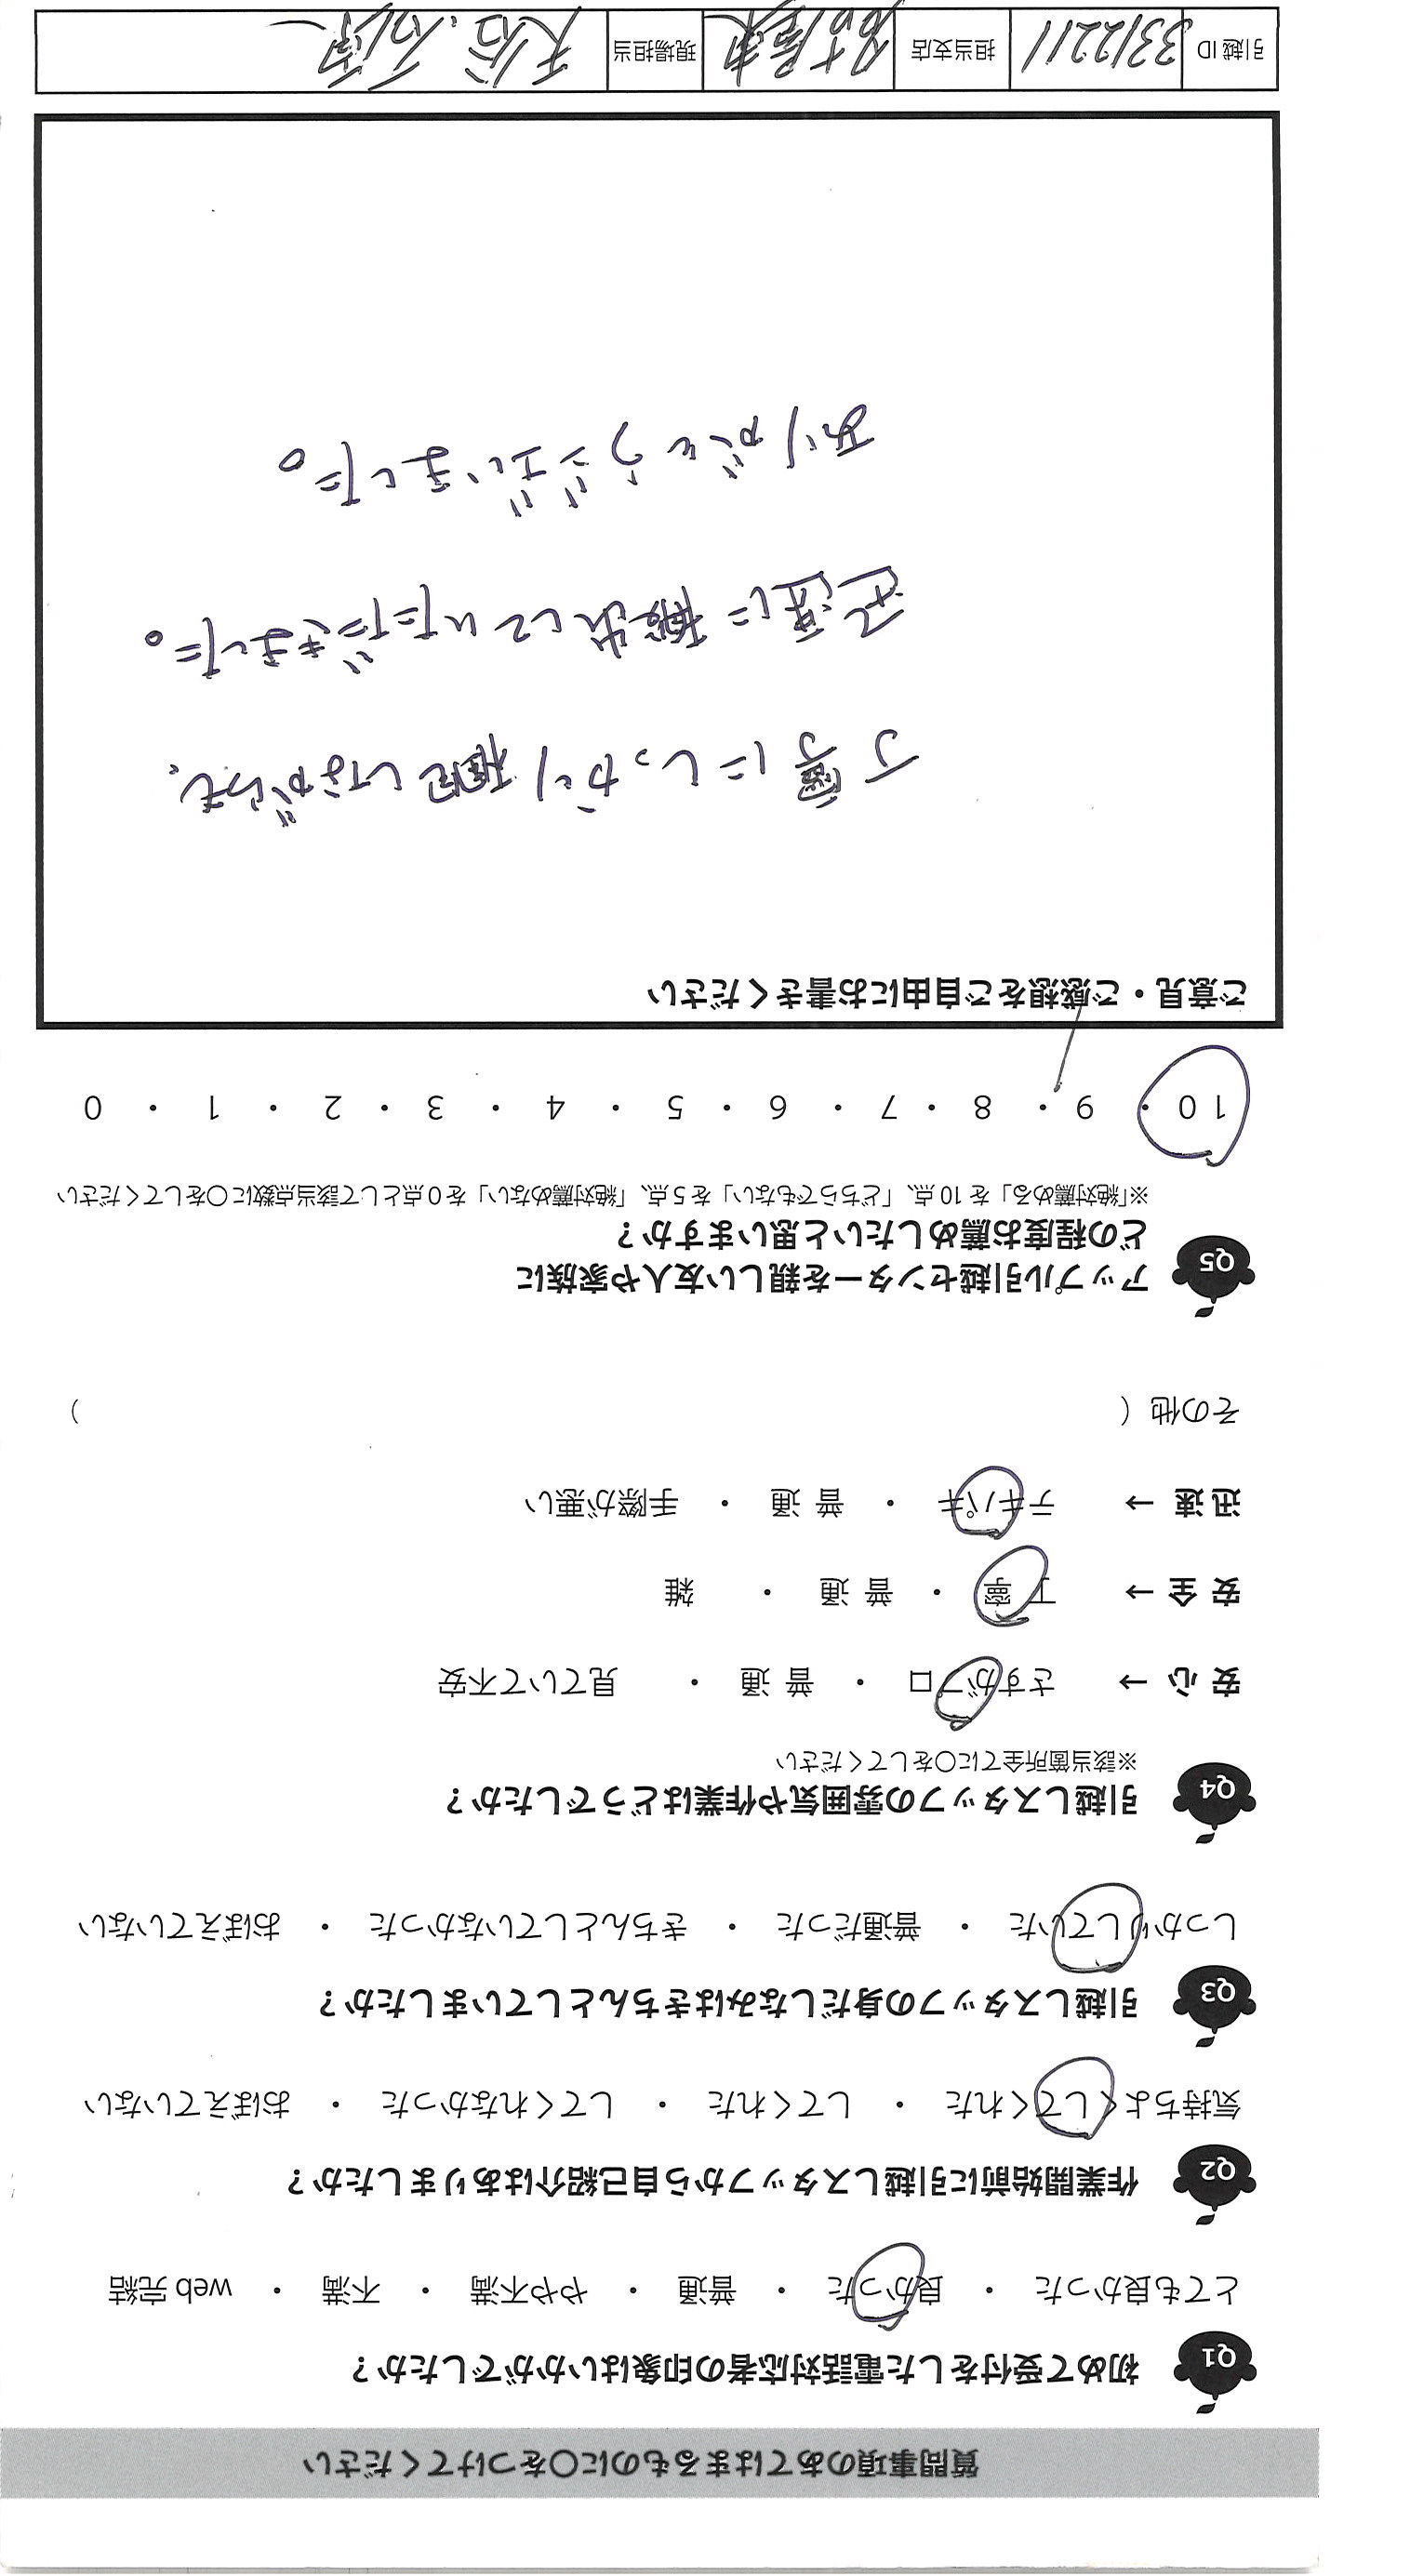 質問事項のあてはまるものに○をつけてください
Q1 初めて受付をした電話対応者の印象はいかがでしたか？
とても良かった ・ 良かった ・ 普通 ・ やや不満 ・ 不満 ・ web 完結
Q2 作業開始前に引越しスタッフから自己紹介はありましたか？
気持ちよくしてくれた ・ してくれた ・ してくれなかった ・ おぼえていない
Q3 引越しスタッフの身だしなみはきちんとしていましたか？
しっかりしていた ・ 普通だった ・ きちんとしていなかった ・ おぼえていない
Q4 引越しスタッフの雰囲気や作業はどうでしたか？
※該当箇所全てに○をしてください
安 心 → さすがプロ ・ 普 通 ・ 見ていて不安
安 全 → 丁 寧 ・ 普 通 ・ 雑
迅 速 → テキパキ ・ 普 通 ・ 手際が悪い
その他（ ）
Q5 アップル引越センターを親しい友人や家族に
どの程度お薦めしたいと思いますか？
※「絶対薦める」を 10 点、「どちらでもない」を 5 点、「絶対薦めない」を 0 点として該当点数に○をしてください
10 ・ 9 ・ 8 ・ 7 ・ 6 ・ 5 ・ 4 ・ 3 ・ 2 ・ 1 ・ 0
ご意見・ご感想をご自由にお書きください
丁寧にしっかり梱包しながらも、
迅速に搬出していただきました。
ありがとうございました。
引越 ID 3312211 担当支店 名古屋東 現場担当